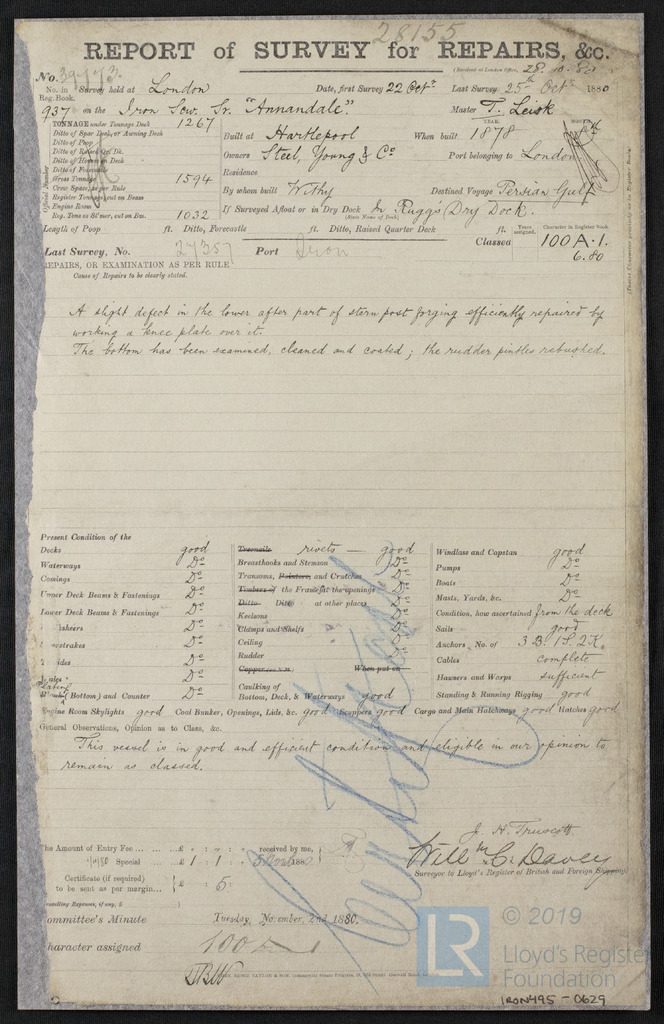 28155
REPORT of SURVEY for REPAIRS, &c.
(Received at London Office, 28.10.80
No. 39773.
No. in Survey held at London Date, first Survey 22 Octr. Last Survey 25th Octr. 1880
Reg. Book.
937 on the Iron Scw. Sr. "Annandale". Master T. Leisk
TONNAGE under Tonnage Deck 1267
Ditto of Spar Deck, or Awning Deck
Ditto of Poop
Ditto of Raised Qr. Dk.
Ditto of House on Deck
Ditto of Forecastle
Gross Tonnage 1594
Crew Space, as per Rule
Register Tonnage cut on Beam
Engine Room
Reg. Tons as St'mer, cut on Bm. 1032
Built at Hartlepool When built YEAR. 1878 MONTH.
Owners Steel, Young & Co Port belonging to London
Residence
By whom built Withy Destined Voyage Persian Gulf
If Surveyed Afloat or in Dry Dock In Rugg's Dry Dock.
(State Name of Dock)
Length of Poop ft. Ditto, Forecastle ft. Ditto, Raised Quarter Deck ft.
Years assigned. Character in Register Book.
Classed 100 A.1.
6.80
Last Survey, No. 27357 Port Iron
REPAIRS, OR EXAMINATION AS PER RULE
Cause of Repairs to be clearly stated.
A slight defect in the lower after part of stern post forging efficiently repaired by
working a knee plate over it.
The bottom has been examined, cleaned and coated; the rudder pintles rebushed.
Present Condition of the
Decks good
Waterways Do
Comings Do
Upper Deck Beams & Fastenings Do
Lower Deck Beams & Fastenings Do
sheers Do
strakes Do
ides Do
Do
(Bottom) and Counter Do
Treenails rivets — good
Breasthooks and Stemson Do
Transoms, Pointers, and Crutches Do
Timbers of the Frame at the openings Do
Ditto Ditto at other places Do
Keelsons Do
Clamps and Shelfs Do
Ceiling Do
Rudder Do
Copper When put on
Caulking of
Bottom, Deck, & Waterways good
Windlass and Capstan good
Pumps Do
Boats Do
Masts, Yards, &c. Do
Condition, how ascertained from the deck
Sails good
Anchors, No. of 3 B. 1 S. 2 K.
Cables complete
Hawsers and Warps sufficient
Standing & Running Rigging good
Engine Room Skylights good Coal Bunker, Openings, Lids, &c. good Scuppers good Cargo and Main Hatchways good Hatches good
General Observations, Opinion as to Class, &c.
This vessel is in good and efficient condition and eligible in our opinion to
remain as classed.
The Amount of Entry Fee ... ... £ : : received by me,
Special ... £ 1 : 1 :
Certificate (if required)
to be sent as per margin... £ : 5 :
Travelling Expenses, if any, £
J. H. Truscott
Willm. C. Davey
Surveyor to Lloyd's Register of British and Foreign Shipping
Committee's Minute Tuesday, November, 2nd 1880.
Character assigned 100 A 1
LR © 2019
Lloyd's Register
Foundation
IRON495-0629